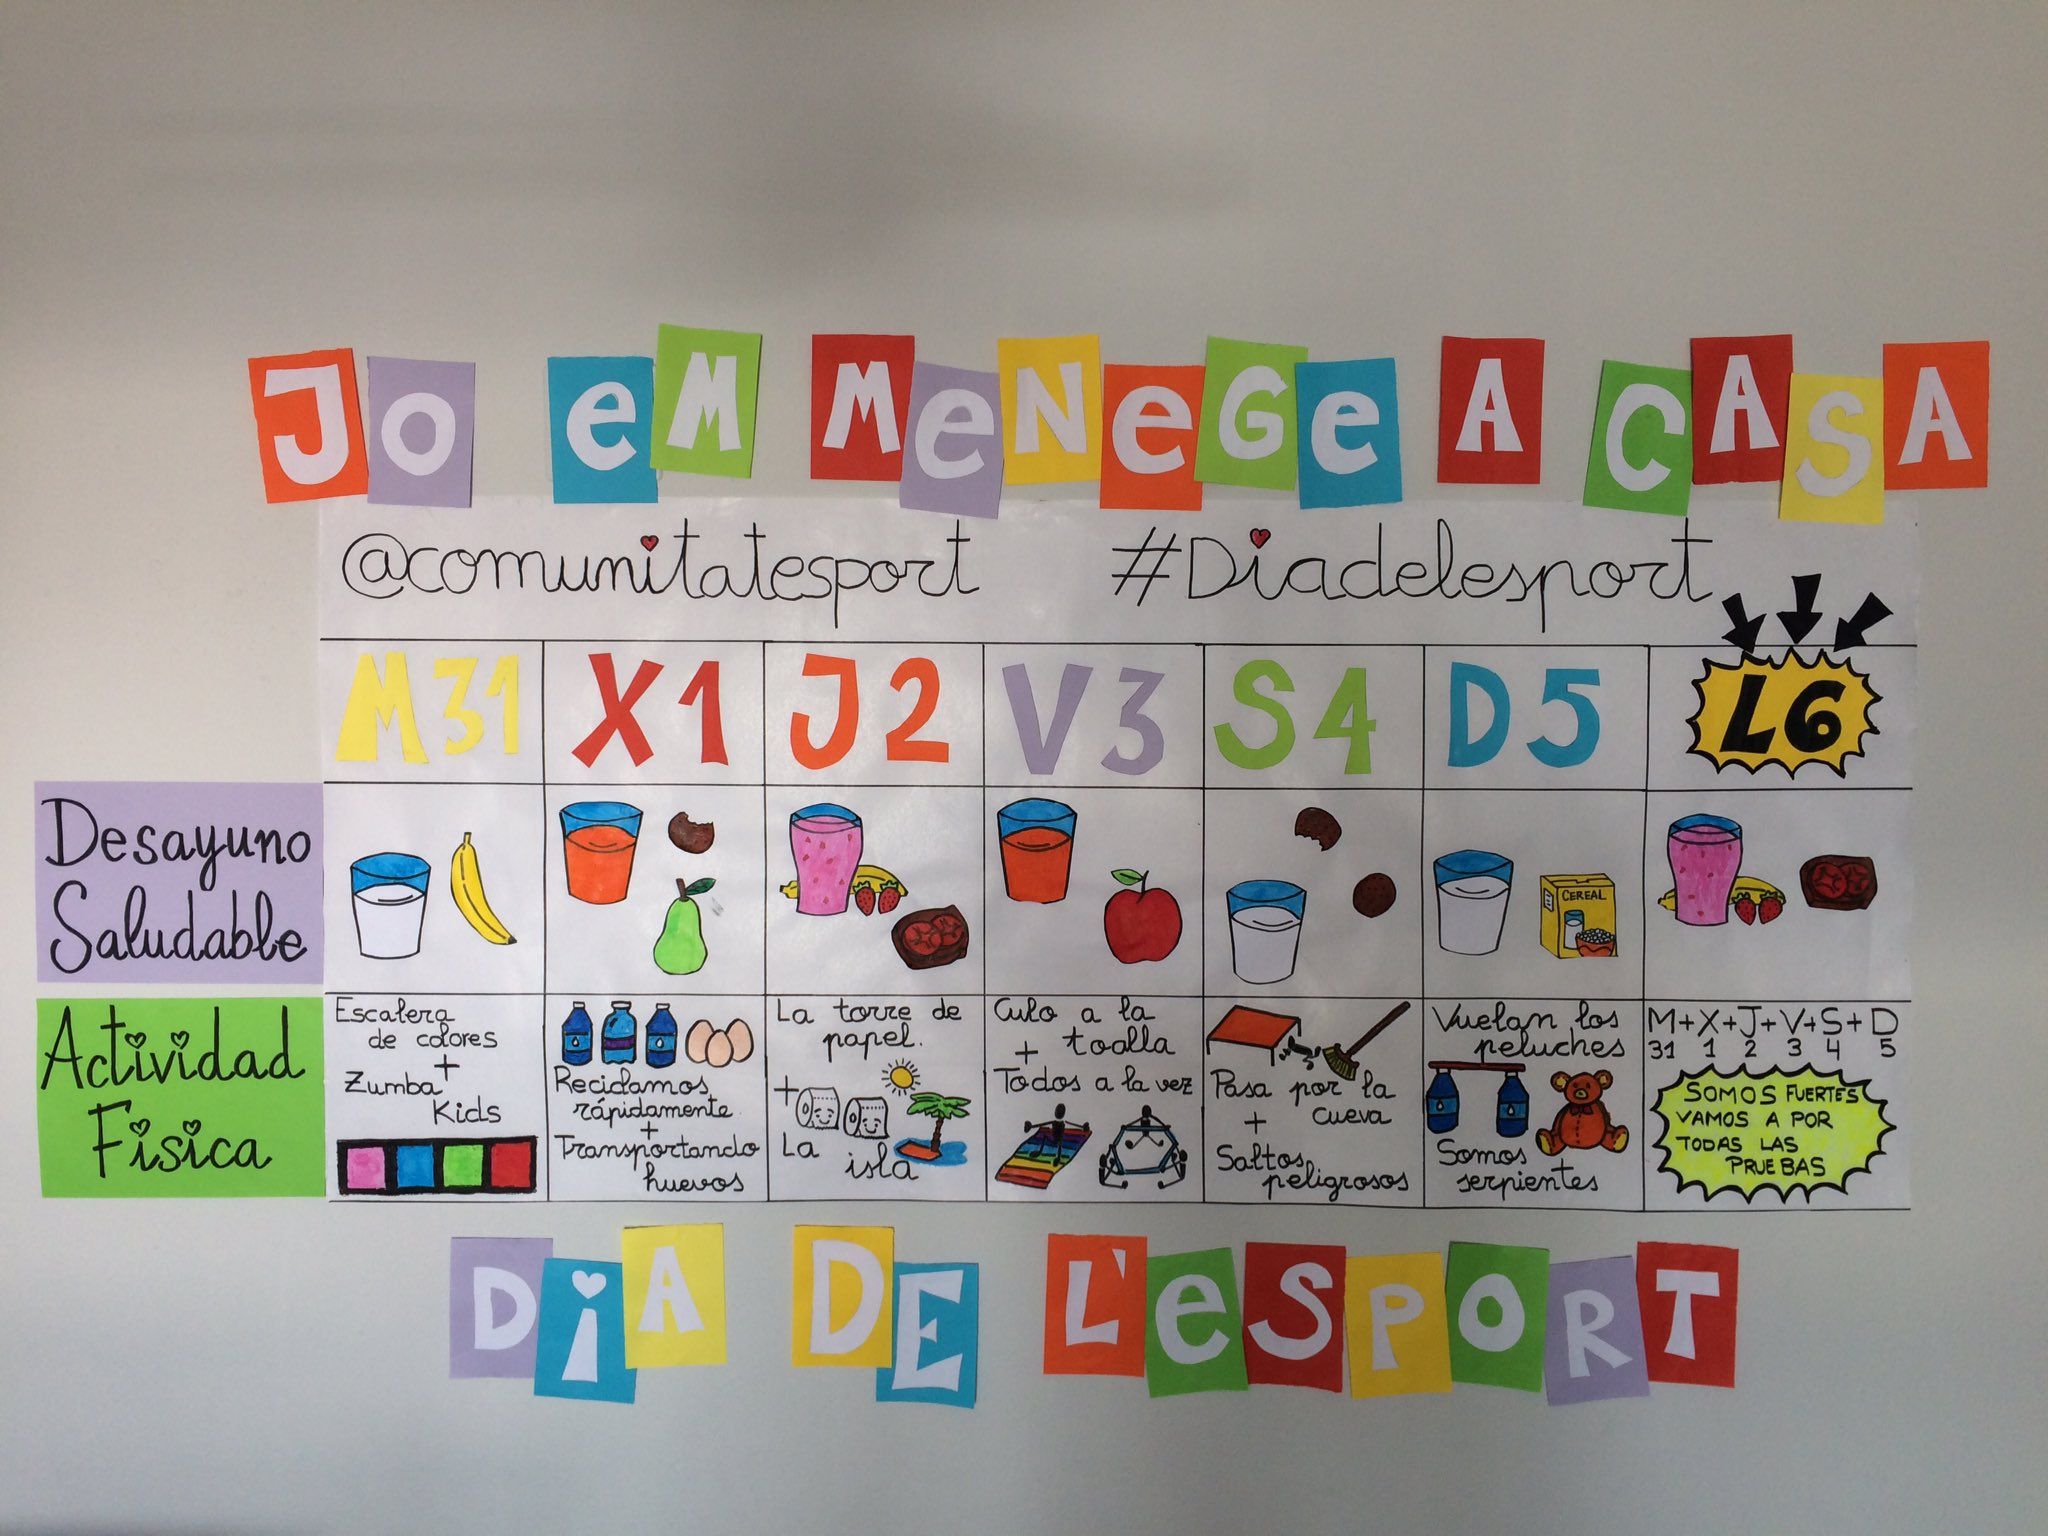 JO eM MeNeGe A CASA
@comunitatesport #Diadelesport
M31 X1 J2 V3 S4 D5 L6
Desayuno
Saludable
CEREAL
Actividad
Fisica
Escalera
de colores
+
Zumba
Kids
Reciclamos
rápidamente
+
Transportando
huevos
La torre de
papel.
+
La
isla
Culo a la
+ toalla
Todos a la vez
Pasa por la
cueva
+
Saltos
peligrosos
Vuelan los
peluches
+
Somos
serpientes
M+X+J+V+S+D
31 1 2 3 4 5
SOMOS FUERTES
VAMOS A POR
TODAS LAS
PRUEBAS
DiA DE L'eSPORT